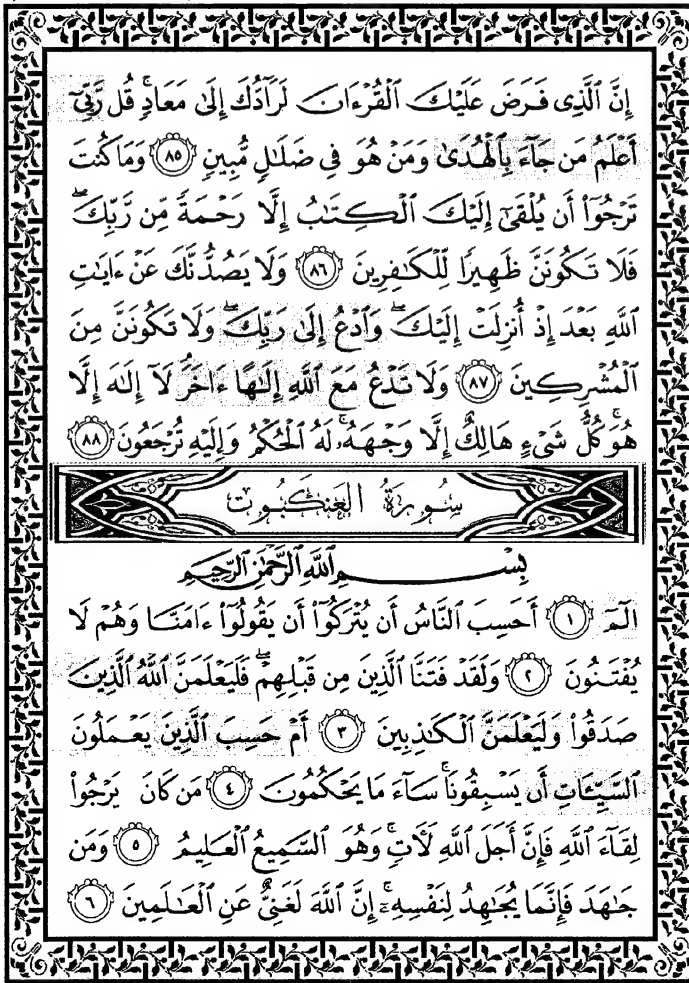 إِنَّ ٱلَّذِى فَرَضَ عَلَيْكَ ٱلْقُرْءَانَ لَرَآدُّكَ إِلَىٰ مَعَادٍۚ قُل رَّبِّىٓ
أَعْلَمُ مَن جَآءَ بِٱلْهُدَىٰ وَمَنْ هُوَ فِى ضَلَٰلٍ مُّبِينٍ ٨٥ وَمَا كُنتَ
تَرْجُوٓا۟ أَن يُلْقَىٰٓ إِلَيْكَ ٱلْكِتَٰبُ إِلَّا رَحْمَةً مِّن رَّبِّكَۖ
فَلَا تَكُونَنَّ ظَهِيرًا لِّلْكَٰفِرِينَ ٨٦ وَلَا يَصُدُّنَّكَ عَنْ ءَايَٰتِ
ٱللَّهِ بَعْدَ إِذْ أُنزِلَتْ إِلَيْكَۖ وَٱدْعُ إِلَىٰ رَبِّكَۖ وَلَا تَكُونَنَّ مِنَ
ٱلْمُشْرِكِينَ ٨٧ وَلَا تَدْعُ مَعَ ٱللَّهِ إِلَٰهًا ءَاخَرَۘ لَآ إِلَٰهَ إِلَّا
هُوَۚ كُلُّ شَىْءٍ هَالِكٌ إِلَّا وَجْهَهُۥۚ لَهُ ٱلْحُكْمُ وَإِلَيْهِ تُرْجَعُونَ ٨٨
سُورَةُ العَنكَبُوت
بِسْمِ ٱللَّهِ ٱلرَّحْمَٰنِ ٱلرَّحِيمِ
الٓمٓ ١ أَحَسِبَ ٱلنَّاسُ أَن يُتْرَكُوٓا۟ أَن يَقُولُوٓا۟ ءَامَنَّا وَهُمْ لَا
يُفْتَنُونَ ٢ وَلَقَدْ فَتَنَّا ٱلَّذِينَ مِن قَبْلِهِمْۖ فَلَيَعْلَمَنَّ ٱللَّهُ ٱلَّذِينَ
صَدَقُوا۟ وَلَيَعْلَمَنَّ ٱلْكَٰذِبِينَ ٣ أَمْ حَسِبَ ٱلَّذِينَ يَعْمَلُونَ
ٱلسَّيِّـَٔاتِ أَن يَسْبِقُونَاۚ سَآءَ مَا يَحْكُمُونَ ٤ مَن كَانَ يَرْجُوا۟
لِقَآءَ ٱللَّهِ فَإِنَّ أَجَلَ ٱللَّهِ لَءَاتٍۚ وَهُوَ ٱلسَّمِيعُ ٱلْعَلِيمُ ٥ وَمَن
جَٰهَدَ فَإِنَّمَا يُجَٰهِدُ لِنَفْسِهِۦٓۚ إِنَّ ٱللَّهَ لَغَنِىٌّ عَنِ ٱلْعَٰلَمِينَ ٦